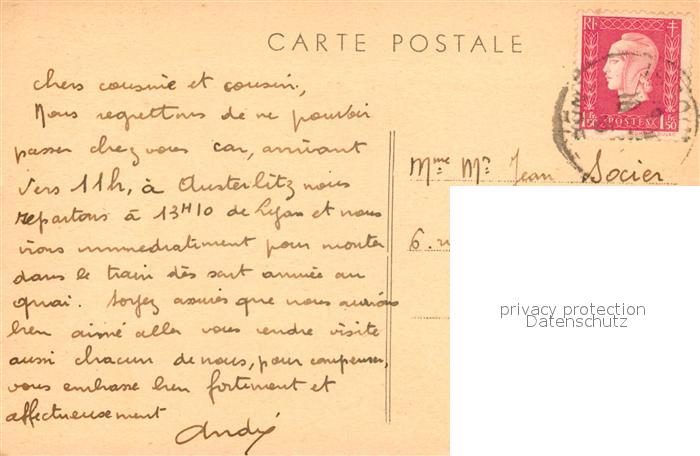 CARTE POSTALE
RF
1F50 POSTES 1F50
chers cousine et cousin,
Nous regrettons de ne pouvoir
passer chez vous car, arrivant
vers 11h, à Austerlitz nous
repartons à 13H10 de Lyon et nous
irons immédiatement pour monter
dans le train dès son arrivée au
quai. Soyez assurés que nous aurions
bien aimé aller vous rendre visite
aussi chacun de nous, pour compenser,
vous embrasse bien fortement et
affectueusement
André
Mme Mr Jean Socier
6.
privacy protection
Datenschutz